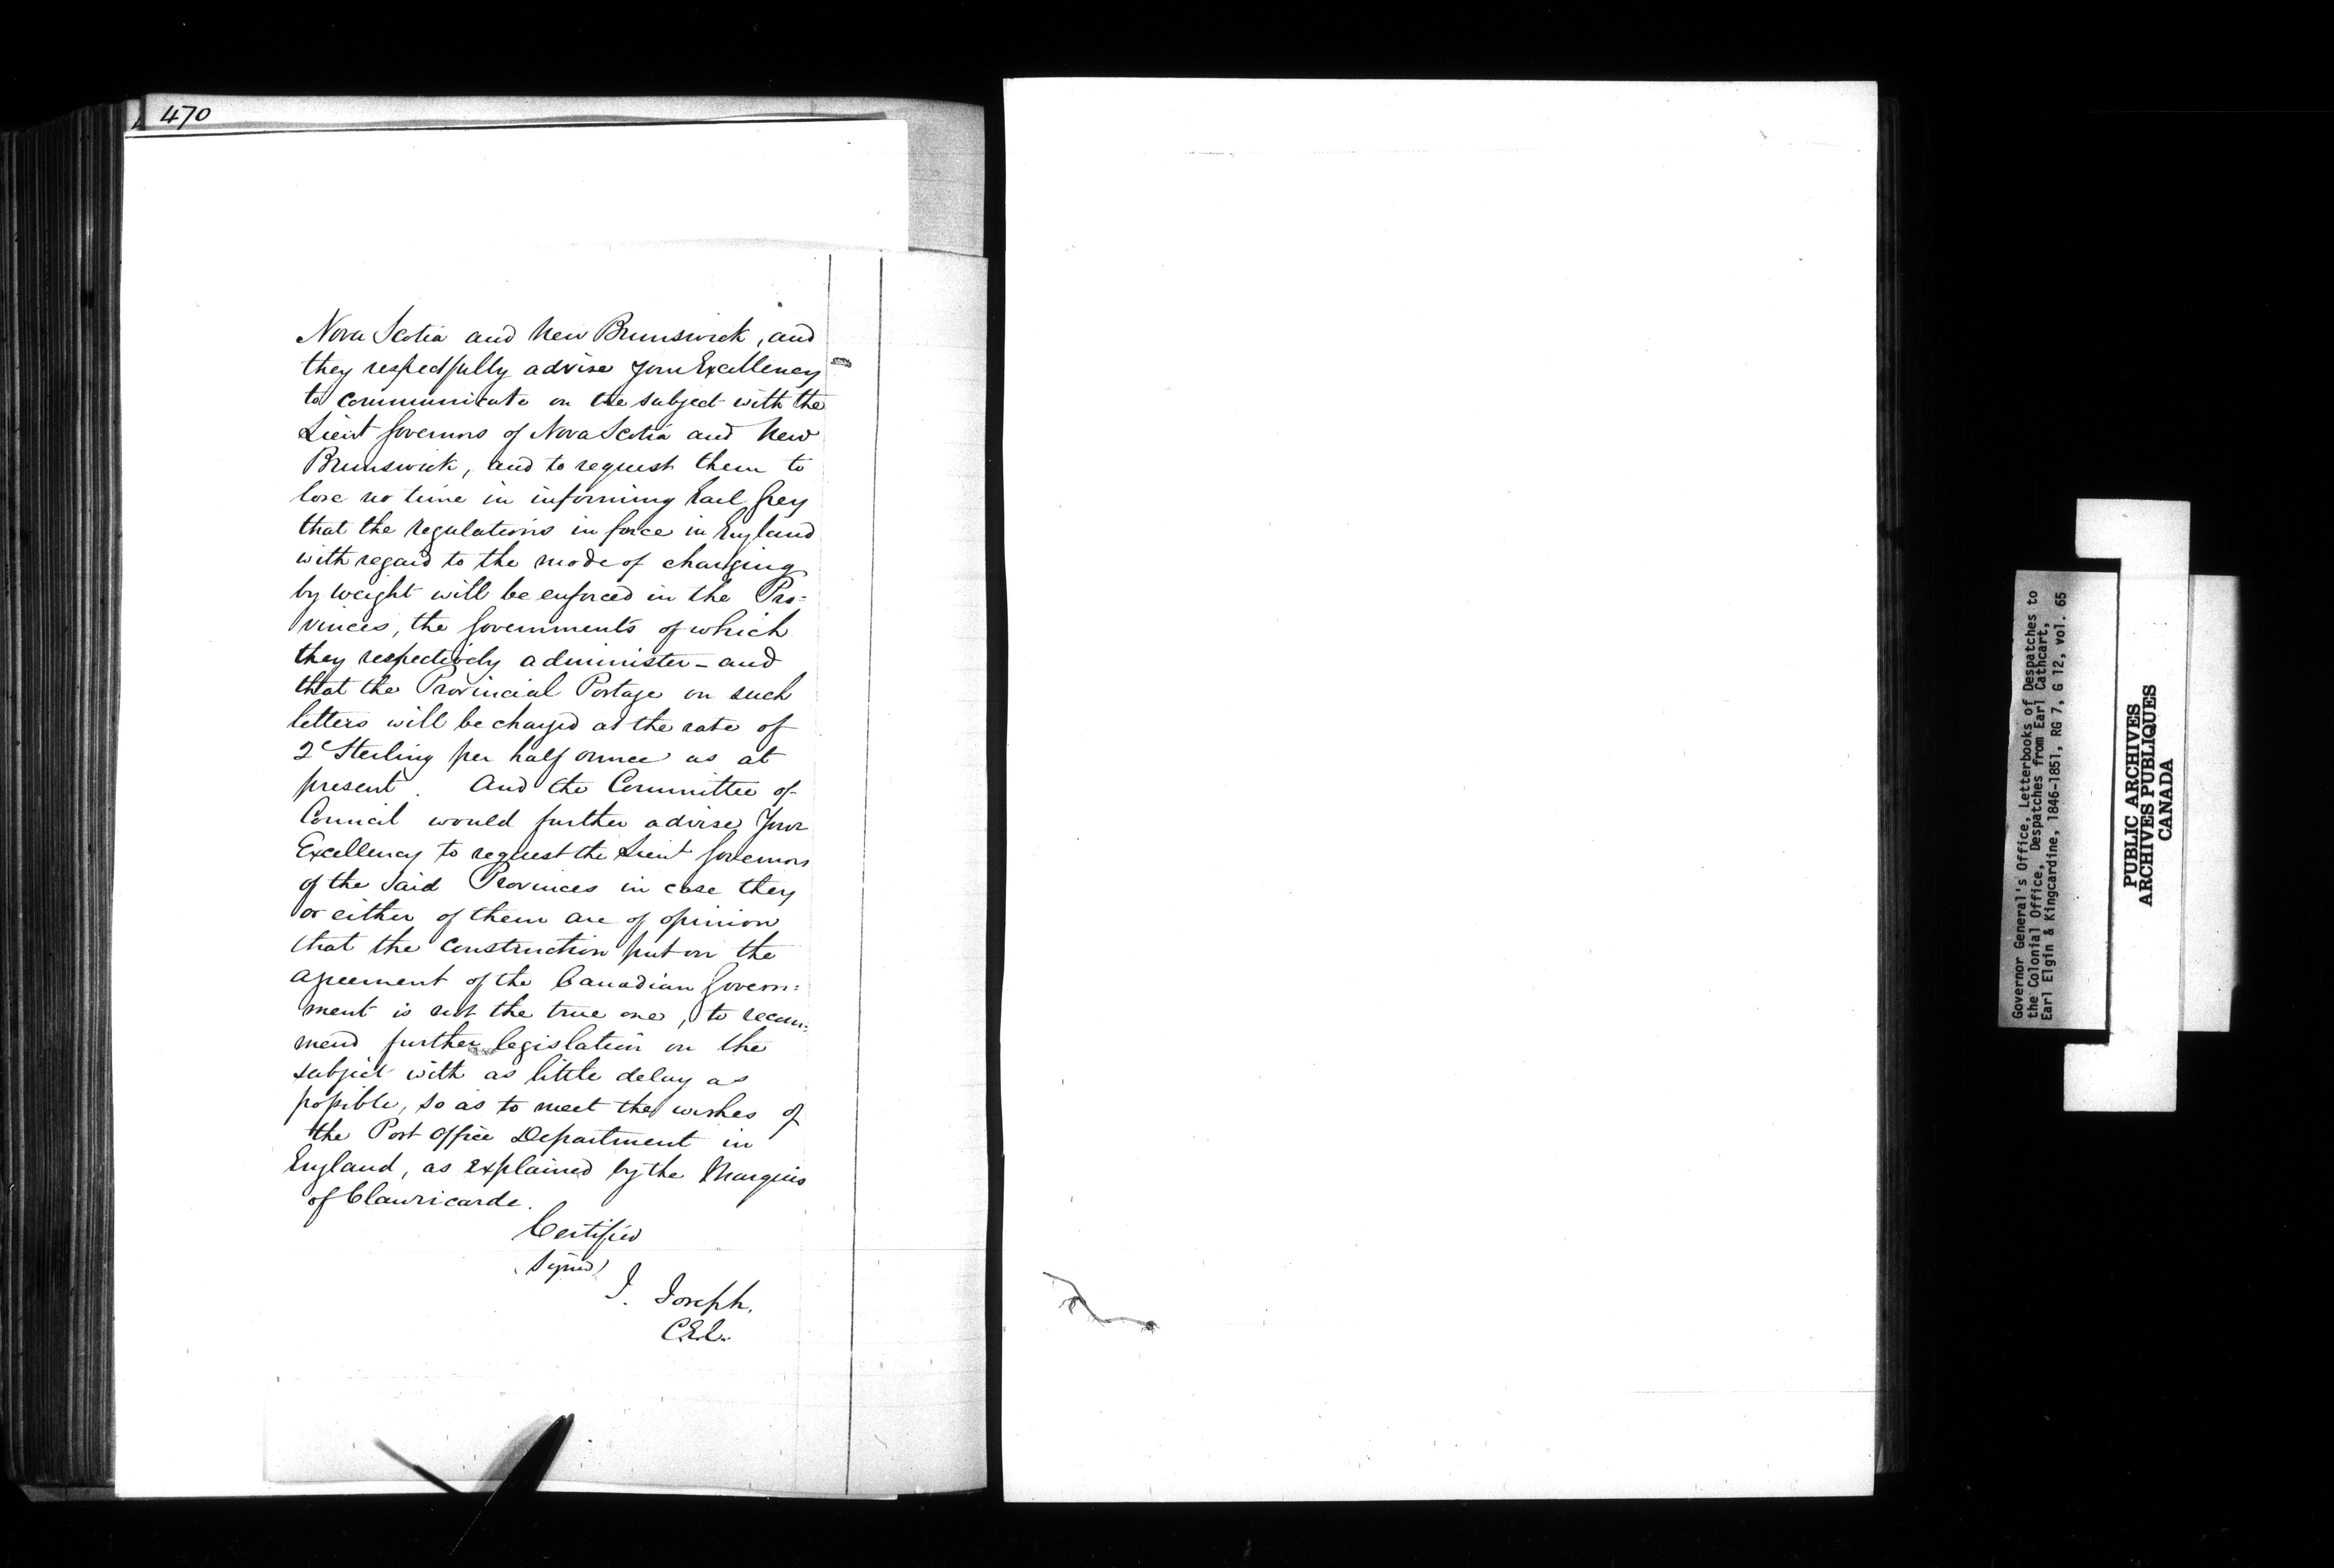 470
Nova Scotia and New Brunswick, and
they respectfully advise Your Excellency
to communicate on the subject with the
Lieut Governors of Nova Scotia and New
Brunswick, and to request them to
lose no time in informing Earl Grey
that the regulations in force in England
with regard to the mode of charging
by weight will be enforced in the Pro=
vinces, the Governments of which
they respectively administer - and
that the Provincial Postage on such
letters will be charged at the rate of
2d Sterling per half ounce as at
present. And the Committee of
Council would further advise Your
Excellency to request the Lieut Governors
of the said Provinces in case they
or either of them are of opinion
that the construction put on the
agreement of the Canadian Govern=
ment is not the true one, to recom=
mend further legislation on the
subject with as little delay as
possible, so as to meet the wishes of
the Post Office Department in
England, as explained by the Marquis
of Clanricarde.
Certified
(signed)
J. Joseph.
C.E.C.
Governor General's Office, Letterbooks of Despatches to
the Colonial Office, Despatches from Earl Cathcart,
Earl Elgin & Kingcardine, 1846-1851, RG 7, G 12, vol. 65
PUBLIC ARCHIVES
ARCHIVES PUBLIQUES
CANADA